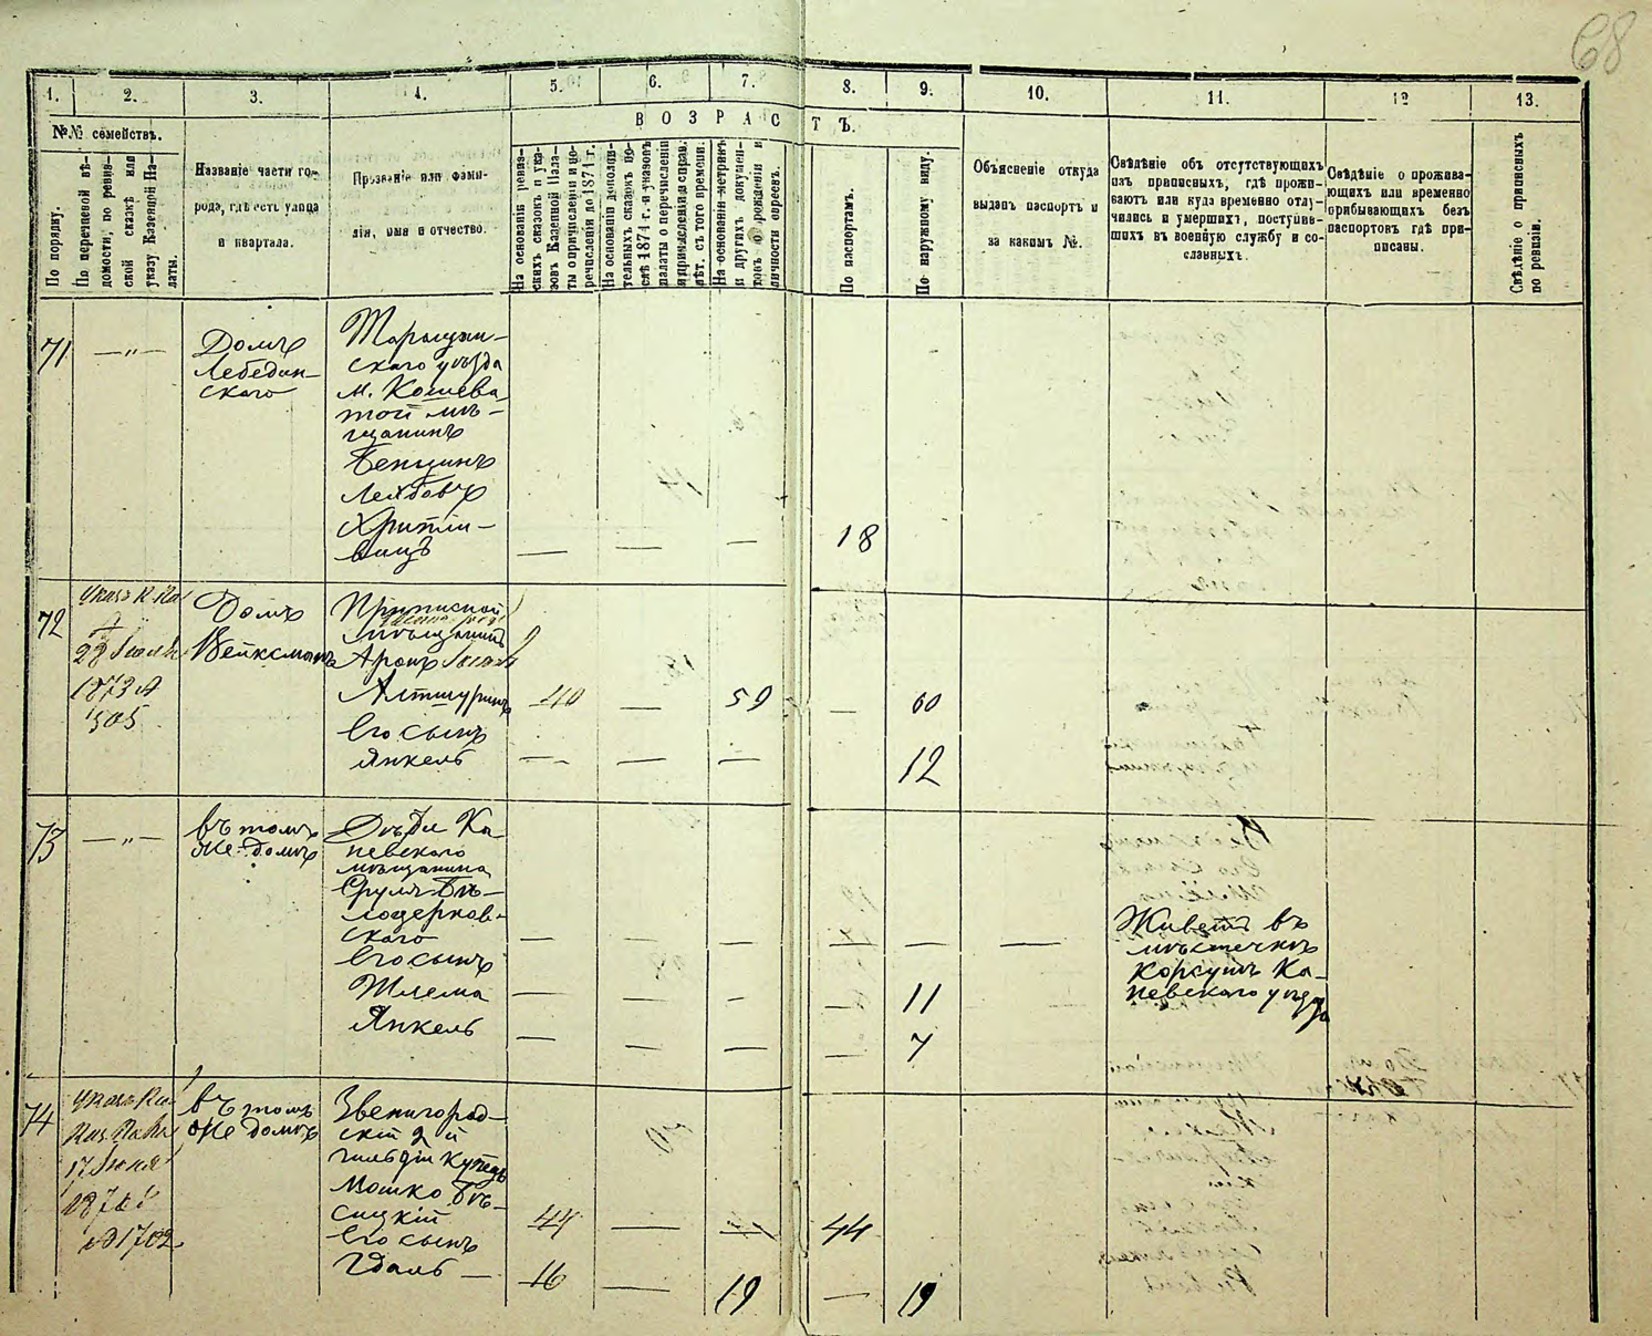 68
1. 2. 3. 4. 5. 6. 7. 8. 9. 10. 11. 12 13.
№№ семействъ.
В О З Р А С Т Ъ.
По порядку.
По перечневой вѣ-
домости, по ревиз-
ской сказкѣ или
указу Казенной Па-
латы.
Названіе части го-
рода, гдѣ есть улица
и квартала.
Прозваніе или фами-
лія, имя и отчество.
На основаніи ревиз-
скихъ сказокъ и ука-
зовъ Казенной Пала-
ты о причисленіи и пе-
речисленіи до 1874 г.
На основаніи дополни-
тельныхъ сказокъ по-
слѣ 1874 г. и указовъ
палаты о перечисленіи
и причисленіи и справ.
лѣт. съ того времени.
На основаніи метрикъ
и другихъ докумен-
товъ о рожденіи и
личности евреевъ.
По паспортамъ.
По наружному виду.
Объясненіе откуда
выданъ паспортъ и
за какимъ №.
Свѣдѣніе объ отсутствующихъ
изъ приписныхъ, гдѣ прожи-
ваютъ или куда временно отлу-
чились и умершихъ, поступив-
шихъ въ военную службу и со-
сланныхъ.
Свѣдѣніе о прожива-
ющихъ или временно
прибывающихъ безъ
паспортовъ гдѣ при-
писаны.
Свѣдѣніе о приписныхъ
по ревизіи.
71
— „ —
Домъ
Лебедин-
скаго
Таращан-
скаго уѣзда
м. Кошева-
той мѣ-
щанинъ
Бенціинъ
Лейбовъ
— — — 18
72
Указъ К. Па
1873
505
Домъ
Вейксманъ
Приписной
мѣщанинъ
Аронъ
40 — 59 — 60
Его сынъ
Янкель
— — — 12
73
— „ —
въ томъ
же домѣ
Дѣти Ка
невскаго
мѣщанина
Сруля Бѣ-
лоцерков-
скаго
— — — — — —
Живетъ въ
мѣстечкѣ
Корсунъ Ка-
невскаго уѣзда
Его сынъ
Шлема
— — — — 11
Янкель
— — — — 7
74
17 Іюня
№ 1702
въ томъ
же домѣ
Звенигород-
скій 2 й
гильдіи купецъ
Мошко Бѣ-
лицкій
44 — — 44
Его сынъ
Гдаль —
16 — 19 — 19